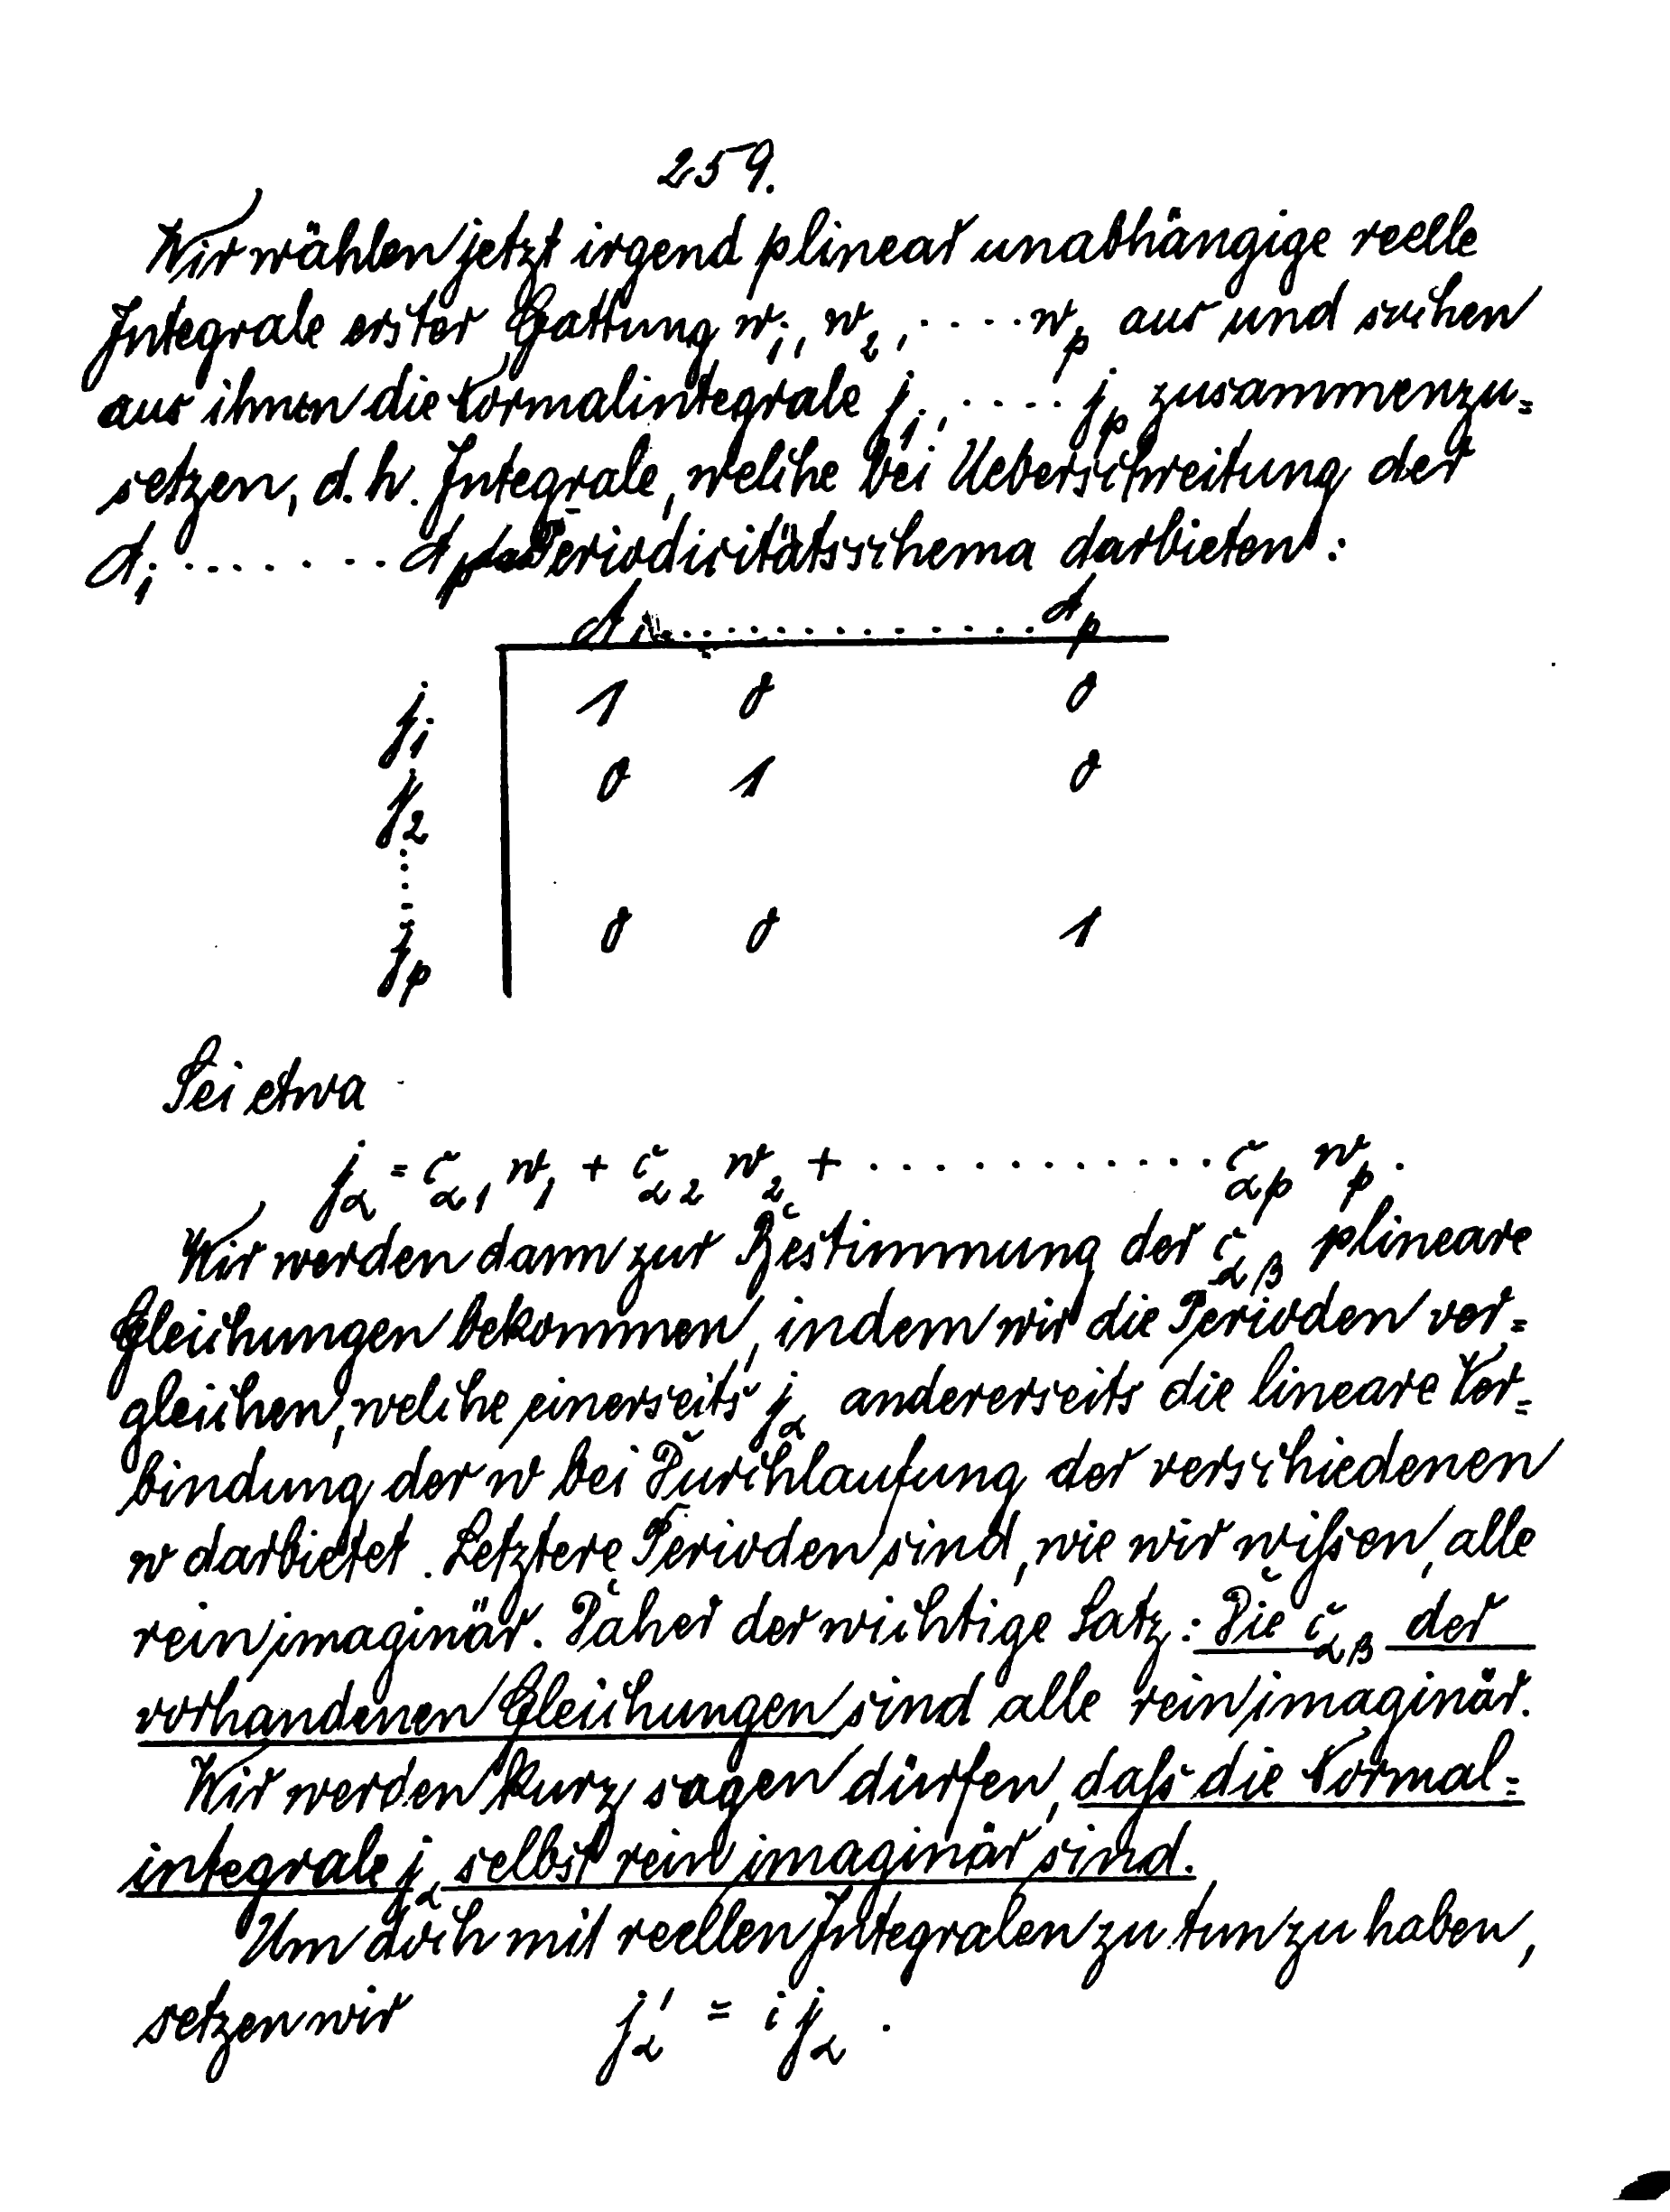 259.
Wir wählen jetzt irgend p linear unabhängige reelle
Integrale erster Gattung w₁, w₂, ···· w_p aus und suchen
aus ihnen die Normalintegrale j₁, ···· j_p zusammenzu=
setzen, d. h. Integrale, welche bei Ueberschreitung der
A₁ ······· A_p das Periodicitätsschema darbieten:
A₁ ·············· A_p
j₁ 1 0 0
j₂ 0 1 0
⋮
j_p 0 0 1
Sei etwa
j_α = c_α1 w₁ + c_α2 w₂ + ············ c_αp w_p.
Wir werden dann zur Bestimmung der c_αβ p lineare
Gleichungen bekommen, indem wir die Perioden ver=
gleichen, welche einerseits j_α andererseits die lineare Ver=
bindung der w bei Durchlaufung der verschiedenen
w darbietet. Letztere Perioden sind, wie wir wissen, alle
rein imaginär. Daher der wichtige Satz: Die c_αβ der
vorhandenen Gleichungen sind alle rein imaginär.
Wir werden kurz sagen dürfen, dass die Normal=
integrale j_α selbst rein imaginär sind.
Um doch mit reellen Integralen zu tun zu haben,
setzen wir j'_α = i j_α.